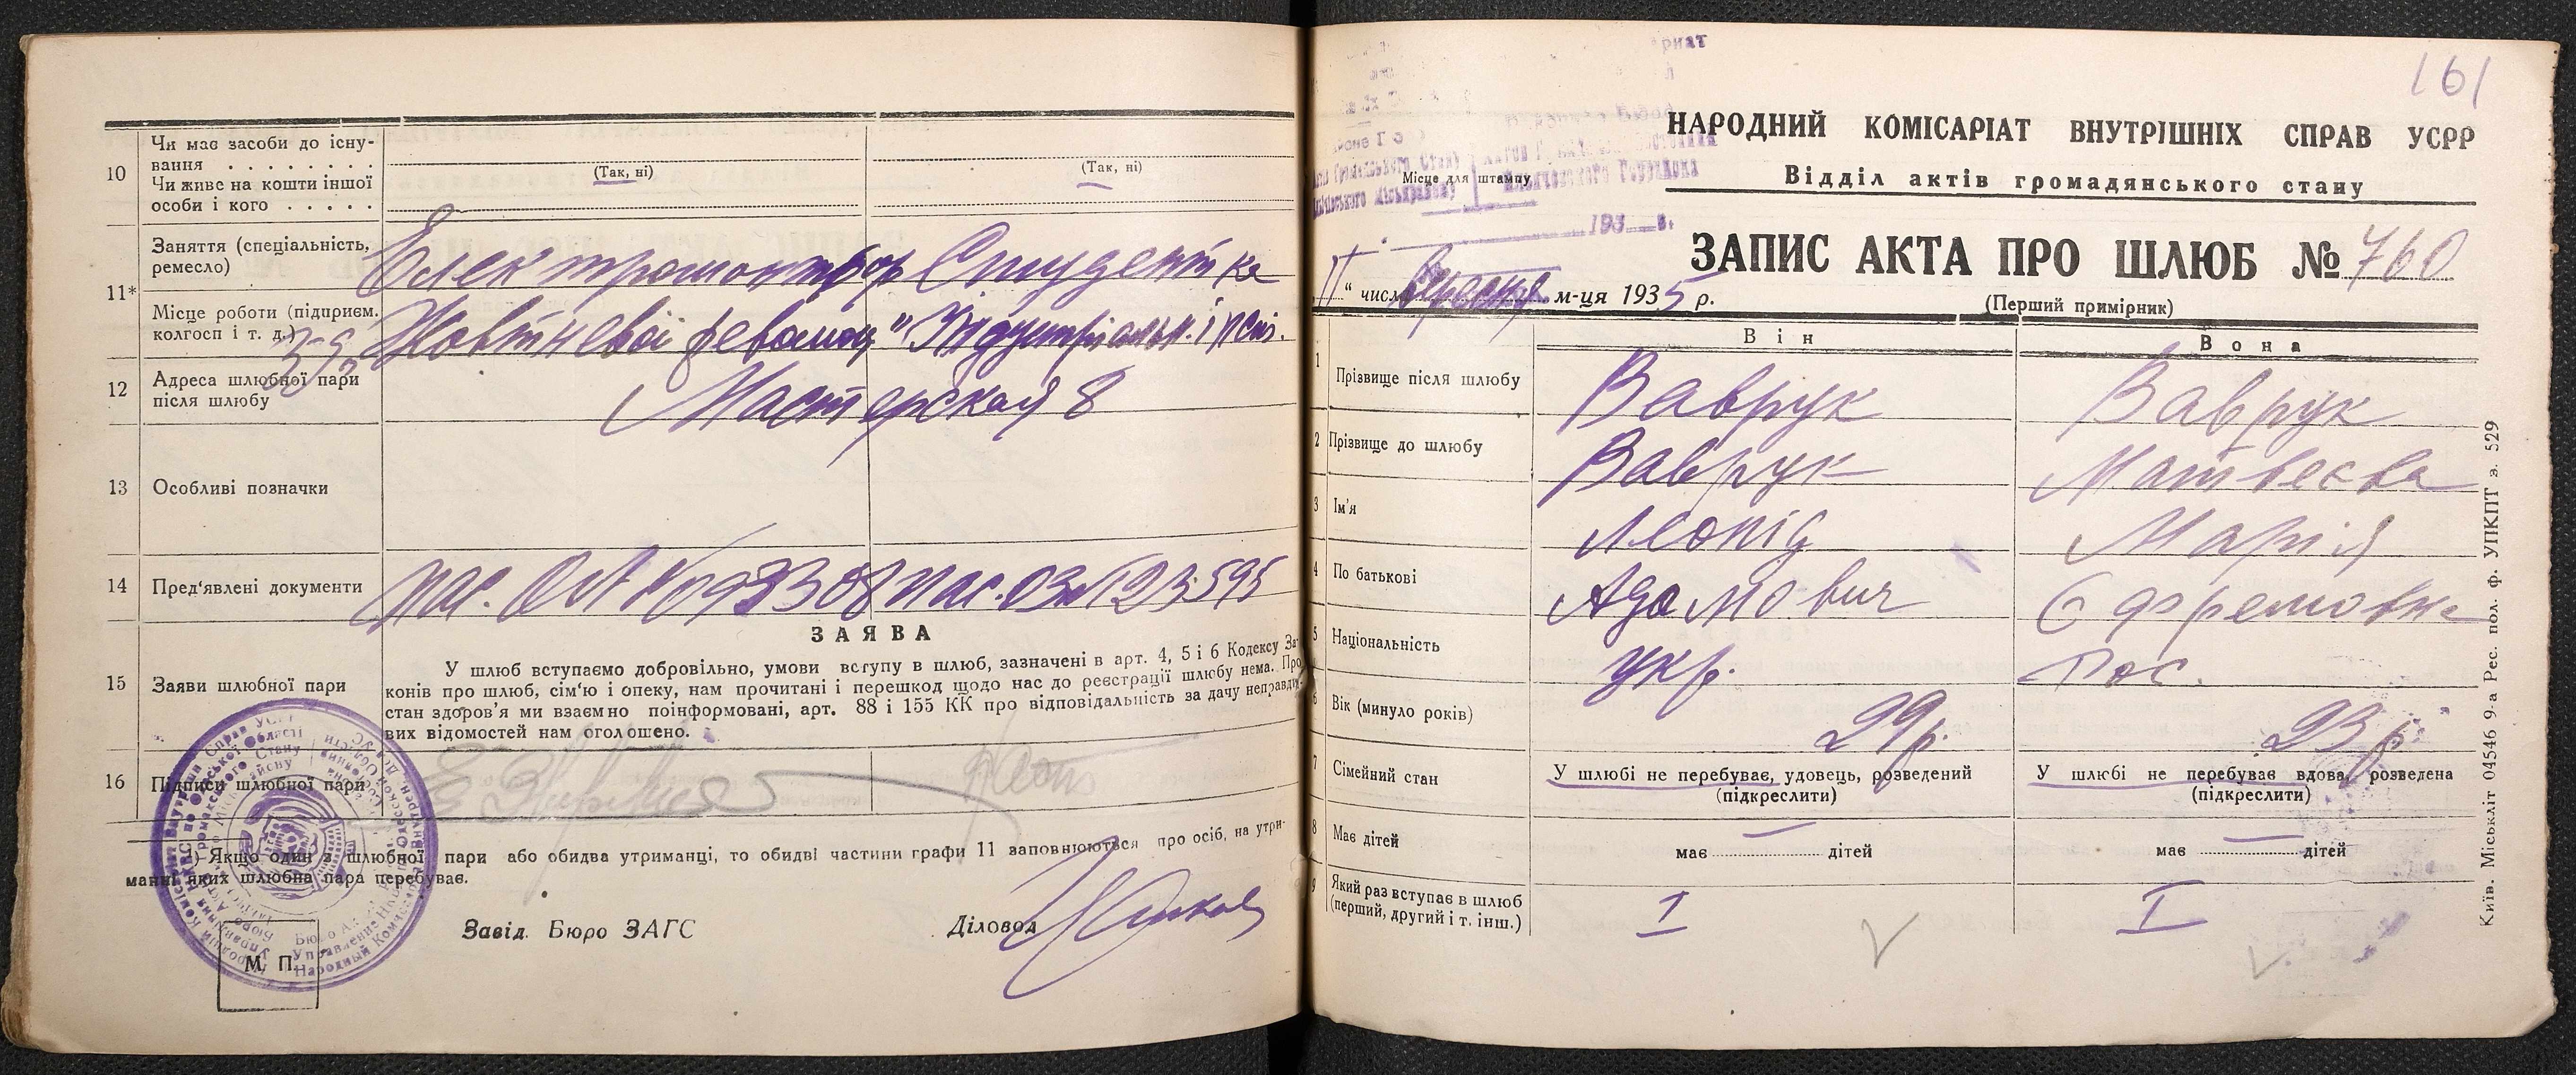 10
Чи має засоби до існу-
вання . . . . . . . .
Чи живе на кошти іншої
особи і кого . . . . .
(Так, ні)
(Так, ні)
11*
Заняття (спеціальність,
ремесло)
Електромонтьор
Студентка
Місце роботи (підприєм.
колгосп і т. д.)
З-д
Жовтневої революц"
Індустріальн. інст.
12
Адреса шлюбної пари
після шлюбу
Мастерская 8
13
Особливі позначки
14
Пред'явлені документи
пас.
пас.
ЗАЯВА
15
Заяви шлюбної пари
У шлюб вступаємо добровільно, умови вступу в шлюб, зазначені в арт. 4, 5 і 6 Кодексу За-
конів про шлюб, сім'ю і опеку, нам прочитані і перешкод щодо нас до реєстрації шлюбу нема. Про
стан здоров'я ми взаємно поінформовані, арт. 88 і 155 КК про відповідальність за дачу неправди-
вих відомостей нам оголошено.
16
Підписи шлюбної пари
1) Якщо один з шлюбної пари або обидва утриманці, то обидві частини графи 11 заповнюються про осіб, на утри-
манні яких шлюбна пара перебуває.
Завід. Бюро ЗАГС
Діловод
М. П.
161
НАРОДНИЙ КОМІСАРІАТ ВНУТРІШНІХ СПРАВ УСРР
Відділ актів громадянського стану
Місце для штампу
193 в.
ЗАПИС АКТА ПРО ШЛЮБ № 760
" числа Вересня м-ця 1935 р.
(Перший примірник)
Він
Вона
1
Прізвище після шлюбу
Ваврук
Ваврук
2
Прізвище до шлюбу
Ваврук
Матвеєва
3
Ім'я
Леонід
Марія
4
По батькові
Адамович
Єфремовна
5
Національність
укр.
рос.
6
Вік (минуло років)
29 р.
23 р.
7
Сімейний стан
У шлюбі не перебуває, удовець, розведений
(підкреслити)
У шлюбі не перебуває вдова, розведена
(підкреслити)
8
Має дітей
має — дітей
має — дітей
9
Який раз вступає в шлюб
(перший, другий і т. інш.)
I
I
Київ. Міськліт 04546 9-а Рес. пол. ф. УПКПТ з. 529